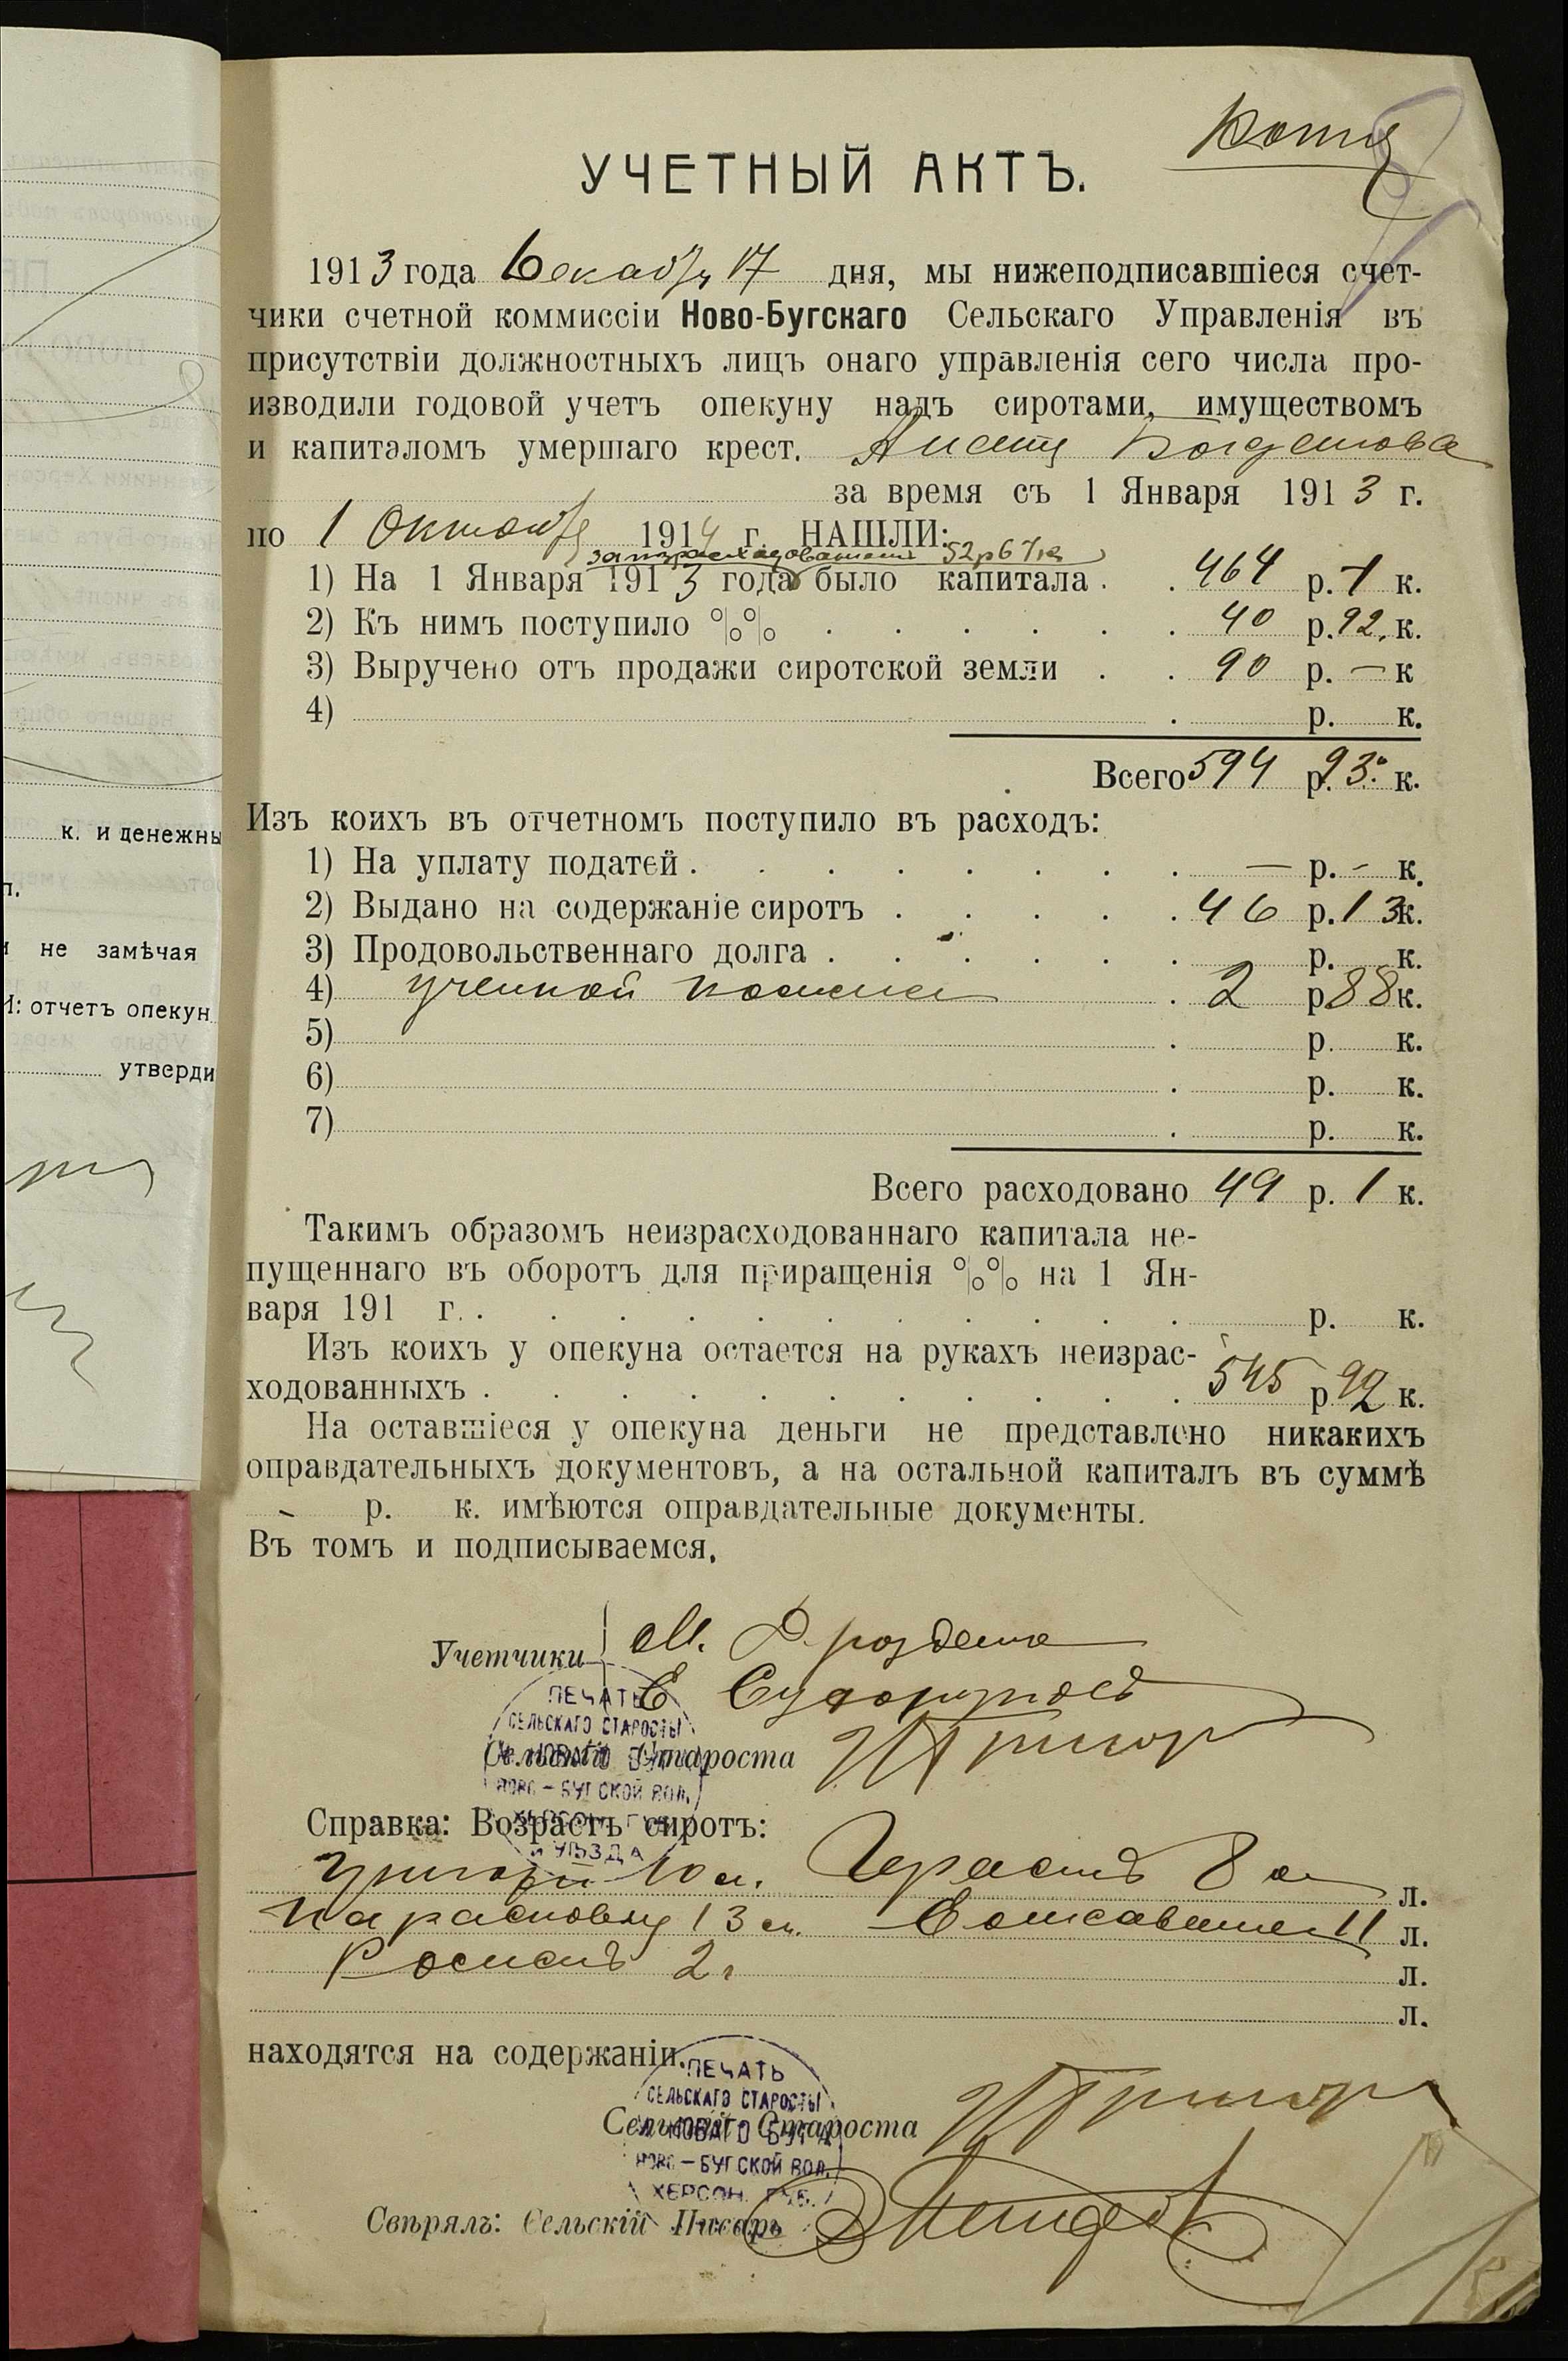 Копія
УЧЕТНЫЙ АКТЪ.
1913 года Декабря 17 дня, мы нижеподписавшіеся счет-
чики счетной коммиссіи Ново-Бугскаго Сельскаго Управленія въ
присутствіи должностныхъ лицъ онаго управленія сего числа про-
изводили годовой учетъ опекуну надъ сиротами, имуществомъ
и капиталомъ умершаго крест.
за время съ 1 Января 1913 г.
по 1 Октября 1914 г. НАШЛИ:
за израсходованіемъ 52 р 67 к
1) На 1 Января 1913 года было капитала . . 464 р. 1 к.
2) Къ нимъ поступило %% . . . . . . 40 р. 92 к.
3) Выручено отъ продажи сиротской земли . . 90 р. — к
4) . р. к.
Всего 594 р. 93 к.
Изъ коихъ въ отчетномъ поступило въ расходъ:
1) На уплату податей . . . . . . . . — р. - к.
2) Выдано на содержаніе сиротъ . . . . . 46 р. 13 к.
3) Продовольственнаго долга . . . . . . р. к.
4) . 2 р 88 к.
5) . р. к.
6) . р. к.
7) . р. к.
Всего расходовано 49 р. 1 к.
Такимъ образомъ неизрасходованнаго капитала не-
пущеннаго въ оборотъ для приращенія %% на 1 Ян-
варя 191 г. . . . . . . . . . . . р. к.
Изъ коихъ у опекуна остается на рукахъ неизрас-
ходованныхъ . . . . . . . . . . . 545 р 92 к.
На оставшіеся у опекуна деньги не представлено никакихъ
оправдательныхъ документовъ, а на остальной капиталъ въ суммѣ
- р. к. имѣются оправдательные документы.
Въ томъ и подписываемся.
Учетчики М.
Е
ПЕЧАТЬ
СЕЛЬСКАГО СТАРОСТЫ
Сельскій Староста
С. НОВАГО БУГА
НОВО-БУГСКОЙ ВОЛ.
Справка: Возрастъ сиротъ:
ХЕРСОН. ГУБ.
И УѢЗДА
Григорій 10 л. Герасимъ 8 л. л.
Парасковія 13 л. Елисавета 11 л.
2 г л.
л.
находятся на содержаніи.
ПЕЧАТЬ
СЕЛЬСКАГО СТАРОСТЫ
Сельскій Староста
С. НОВАГО БУГА
НОВО-БУГСКОЙ ВОЛ.
ХЕРСОН. ГУБ.
Свѣрялъ: Сельскій Писарь
к. и денежны
п.
и не замѣчая
И: отчетъ опекун
утверди